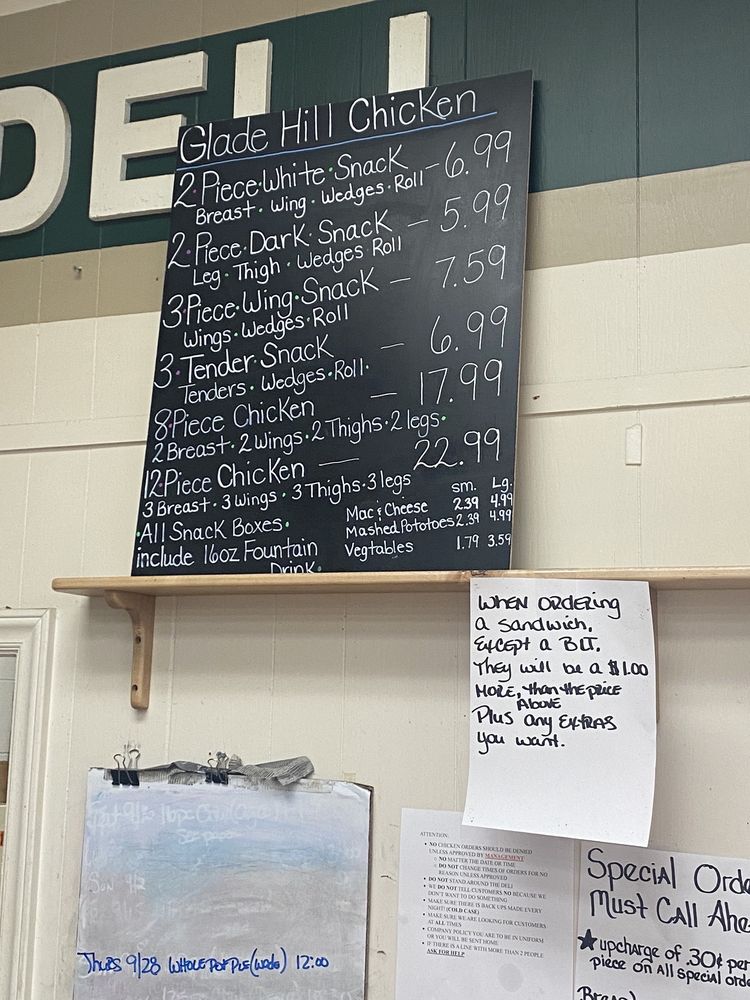 DELI
Glade Hill Chicken
2·Piece·White·Snack - 6.99
Breast· Wing·Wedges·Roll
2·Piece·Dark·Snack - 5.99
Leg·Thigh·Wedges Roll
3·Piece·Wing·Snack - 7.59
Wings·Wedges·Roll
3·Tender·Snack - 6.99
Tenders·Wedges·Roll·
8·Piece Chicken - 17.99
2 Breast·2 Wings·2 Thighs·2 legs·
12 Piece Chicken - 22.99
3 Breast·3 Wings·3 Thighs·3 legs
·All Snack Boxes·
include 16oz Fountain
Drink·
sm. Lg.
Mac & Cheese 2.39 4.99
Mashed Pototoes 2.39 4.99
Vegtables 1.79 3.59
WHEN ORDERING
a Sandwich,
Except a BLT.
They will be a $1.00
MORE, than the price
Above
Plus any EXTRAS
you want.
Thurs 9/28 WHOLE POT PIE 12:00
ATTENTION:
• NO CHICKEN ORDERS SHOULD BE DENIED
UNLESS APPROVED BY MANAGEMENT
o NO MATTER THE DATE OR TIME
o DO NOT CHANGE TIMES OF ORDERS FOR NO
REASON UNLESS APPROVED
• DO NOT STAND AROUND THE DELI
• WE DO NOT TELL CUSTOMERS NO BECAUSE WE
DON'T WANT TO DO SOMETHING
• MAKE SURE THERE IS BACK UPS MADE EVERY
NIGHT! (COLD CASE)
• MAKE SURE WE ARE LOOKING FOR CUSTOMERS
AT ALL TIMES
• COMPANY POLICY YOU ARE TO BE IN UNIFORM
OR YOU WILL BE SENT HOME
• IF THERE IS A LINE WITH MORE THAN 2 PEOPLE
ASK FOR HELP
Special Orde
Must Call Ahe
★ upcharge of .30¢ per
piece on All special orde